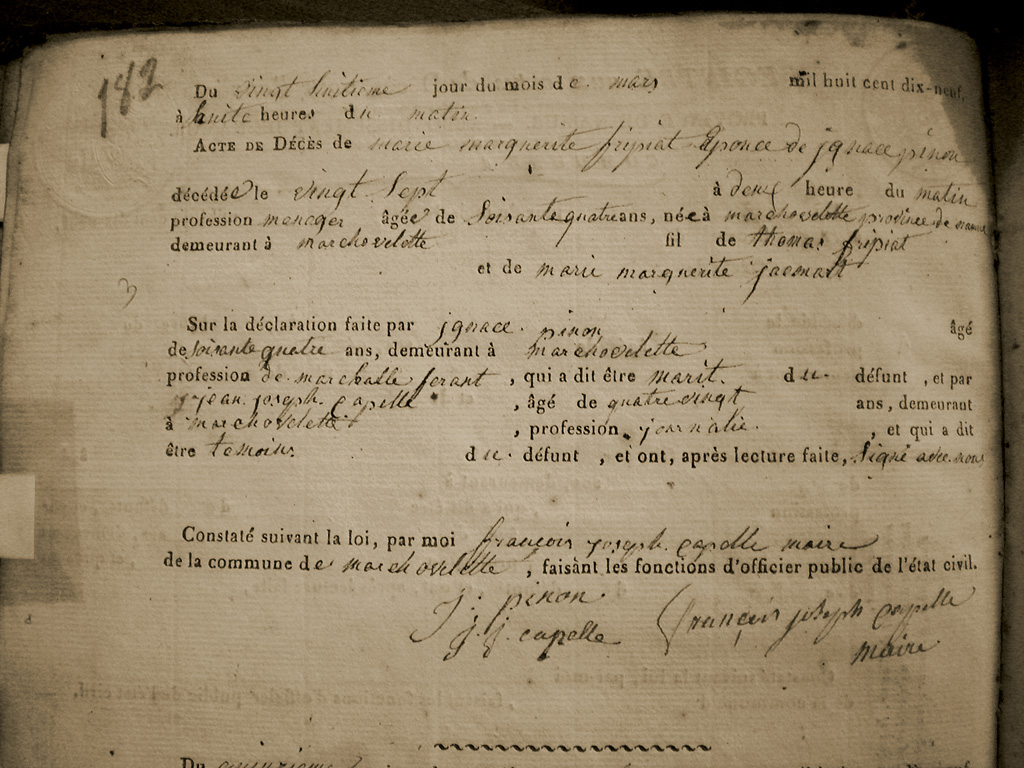 182
Du vingt huitieme jour du mois de mars mil huit cent dix-neuf,
à huite heures du matin.
ACTE DE DÉCÈS de marie marguerite fripiat Eponce de jgnace pinon
décédée le vingt Sept à deux heure du matin
profession menager âgée de Soisante quatre ans, née à marchovelette province de namur
demeurant à marchovelette fil de thomas fripiat
et de marie marguerite jacmart
Sur la déclaration faite par jgnace pinon âgé
de soisante quatre ans, demeurant à marchovelette
profession de marchalle ferant , qui a dit être marit. du défunt , et par
jean joseph capelle , âgé de quatre vingt ans, demeurant
à marchovelette , profession journalie. , et qui a dit
être temoin. du défunt , et ont, après lecture faite, Signé avec nous
Constaté suivant la loi, par moi françois joseph capelle maire
de la commune de marchovelette , faisant les fonctions d'officier public de l'état civil.
J: pinon
j. j. capelle
françois joseph capelle
maire
Du quinzieme